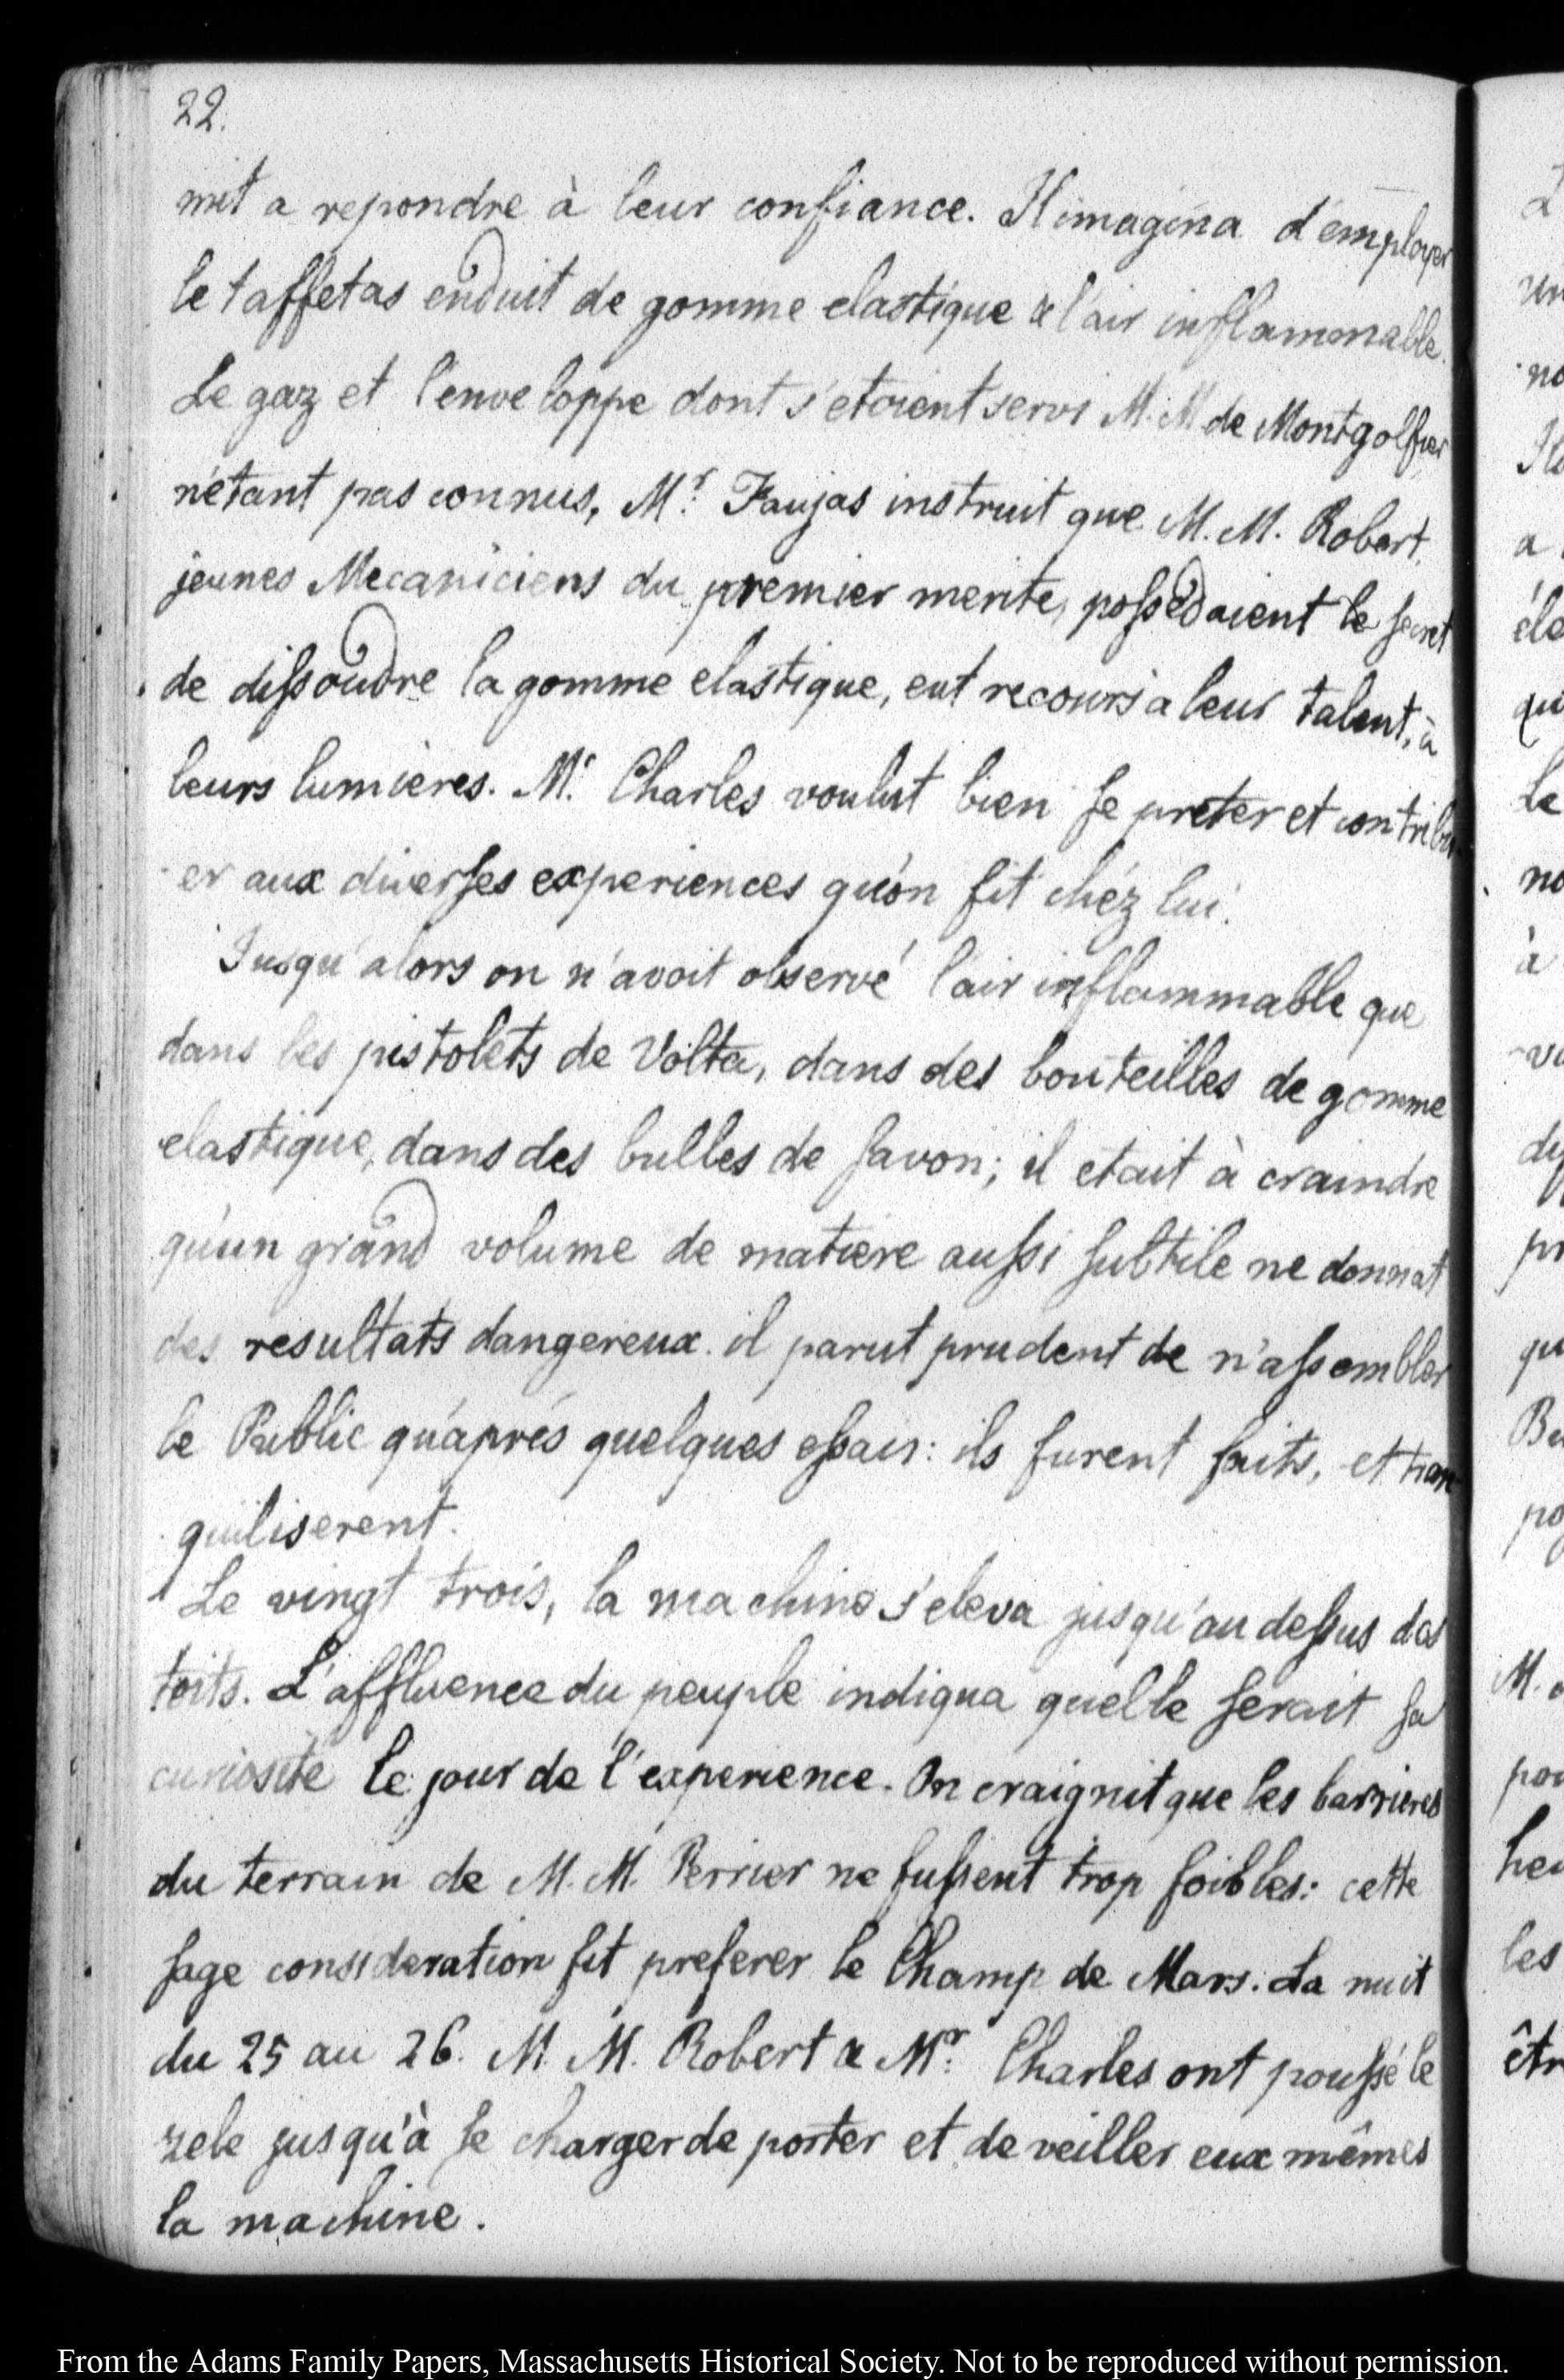 22.
mit a repondre à leur confiance. Il imagina d'employer
le taffetas enduit de gomme elastique & l'air inflammable.
Le gaz et l'enveloppe dont s'etoient servi M. M de Montgolfier
n'étant pas connus, Mr. Faujas instruit que M. M. Robert,
jeunes Mecaniciens du premier merite, possedaient le secret
de dissoudre la gomme elastique, eut recours a leur talent, à
leurs lumières. Mr. Charles voulut bien se preter et contribu-
er aux diverses experiences qu'on fit chéz lui.
Jusqu'alors on n'avoit observé l'air inflammable que
dans les pistolets de Volta, dans des bouteilles de gomme
elastique, dans des bulles de savon; il etait à craindre
qu'un grand volume de matiere aussi subtile ne donnat
des resultats dangereux. il parut prudent de n'assembler
le Public qu'aprés quelques essais: ils furent faits, et tran-
quiliserent.
Le vingt trois, la machine s'eleva jusqu'au dessus des
toits. L'affluence du peuple indiqua quelle serait sa
curiosité le jour de l'experience. On craignit que les barrieres
du terrain de M. M. Perrier ne fussent trop foibles: cette
sage consideration fit preferer le Champ de Mars. La nuit
du 25 au 26. M. M. Robert & Mr. Charles ont poussé le
zele jusqu'à se charger de porter et de veiller eux mêmes
la machine.
un
no
a
éle
qu
Le
no
à
pr
qu
po
M.
pou
les
êtr
From the Adams Family Papers, Massachusetts Historical Society. Not to be reproduced without permission.